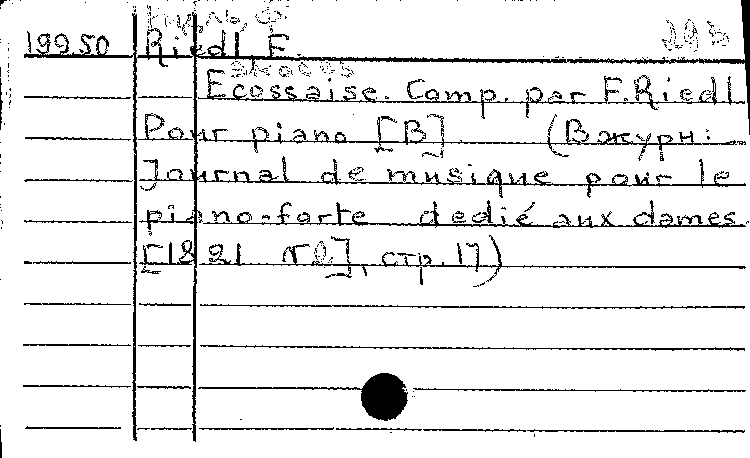 Ридль, Ф.
19950 Riedl F. 293
экосез
Ecossaise. Comp. par F. Riedl
Pour piano [В] (В журн:
Journal de musique pour le
piano-forte dedié aux dames.
[1821 г.], стр. 17)